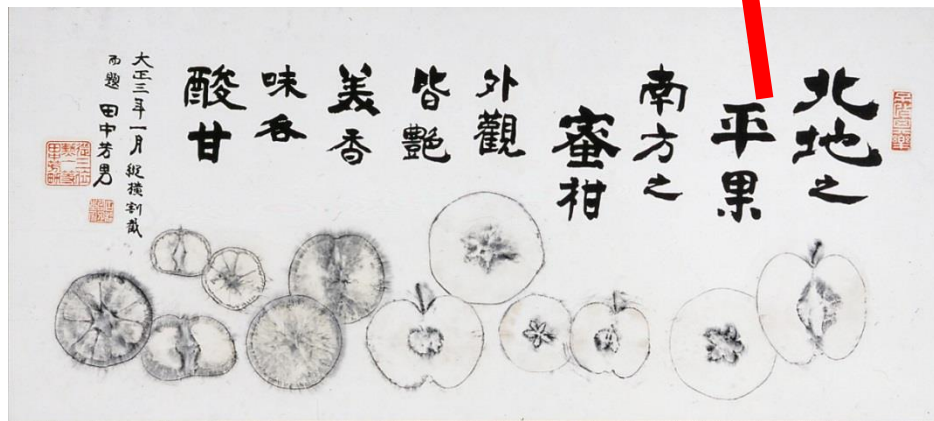 北地之
平果
南方之
蜜柑
外觀
皆艶
美香
味呑
酸甘
大正三年一月縱横割截
而題 田中芳男